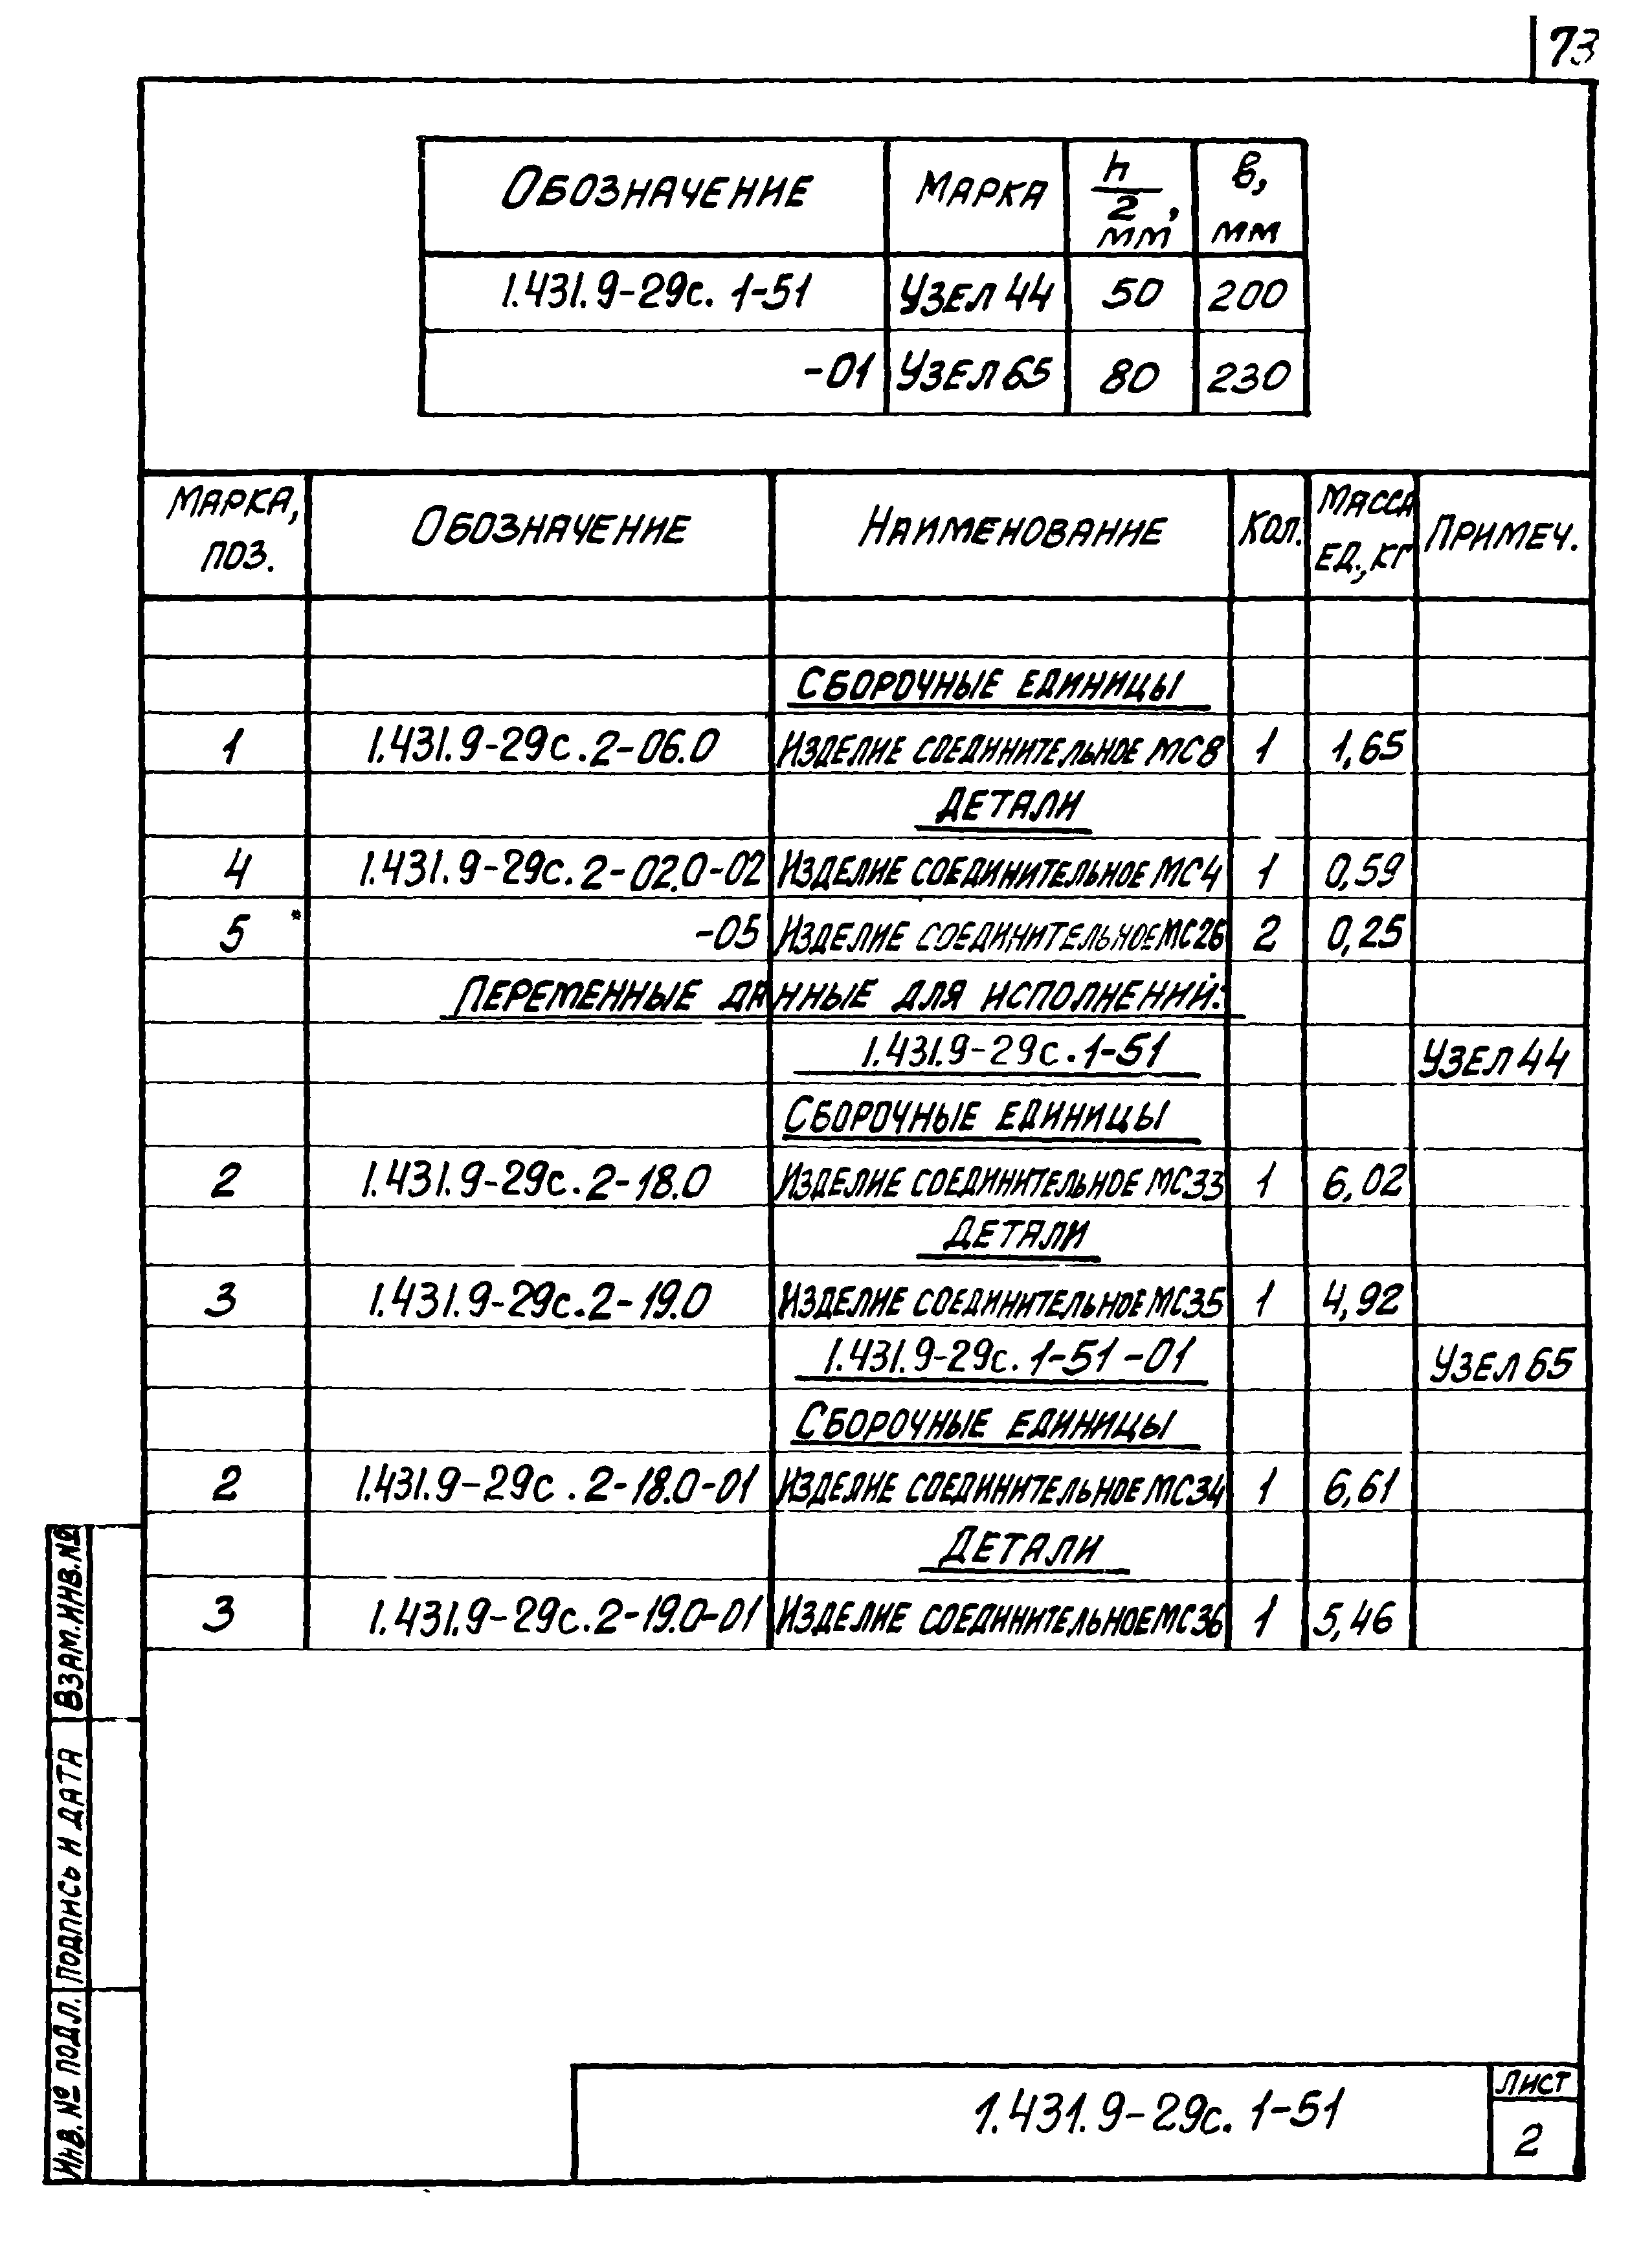 73
ОБОЗНАЧЕНИЕ МАРКА h/2, мм в, мм
1.431.9-29с.1-51 УЗЕЛ 44 50 200
-01 УЗЕЛ 65 80 230
МАРКА, ПОЗ. ОБОЗНАЧЕНИЕ НАИМЕНОВАНИЕ КОЛ. МАССА ЕД., КГ ПРИМЕЧ.
СБОРОЧНЫЕ ЕДИНИЦЫ
1 1.431.9-29с.2-06.0 ИЗДЕЛИЕ СОЕДИНИТЕЛЬНОЕ МС8 1 1,65
ДЕТАЛИ
4 1.431.9-29с.2-02.0-02 ИЗДЕЛИЕ СОЕДИНИТЕЛЬНОЕ МС4 1 0,59
5 -05 ИЗДЕЛИЕ СОЕДИНИТЕЛЬНОЕ МС26 2 0,25
ПЕРЕМЕННЫЕ ДАННЫЕ ДЛЯ ИСПОЛНЕНИЙ:
1.431.9-29с.1-51 УЗЕЛ 44
СБОРОЧНЫЕ ЕДИНИЦЫ
2 1.431.9-29с.2-18.0 ИЗДЕЛИЕ СОЕДИНИТЕЛЬНОЕ МС33 1 6,02
ДЕТАЛИ
3 1.431.9-29с.2-19.0 ИЗДЕЛИЕ СОЕДИНИТЕЛЬНОЕ МС35 1 4,92
1.431.9-29с.1-51-01 УЗЕЛ 65
СБОРОЧНЫЕ ЕДИНИЦЫ
2 1.431.9-29с.2-18.0-01 ИЗДЕЛИЕ СОЕДИНИТЕЛЬНОЕ МС34 1 6,61
ДЕТАЛИ
3 1.431.9-29с.2-19.0-01 ИЗДЕЛИЕ СОЕДИНИТЕЛЬНОЕ МС36 1 5,46
ВЗАМ.ИНВ.№
ПОДПИСЬ И ДАТА
ИНВ. № ПОДЛ.
1.431.9-29с.1-51
ЛИСТ
2